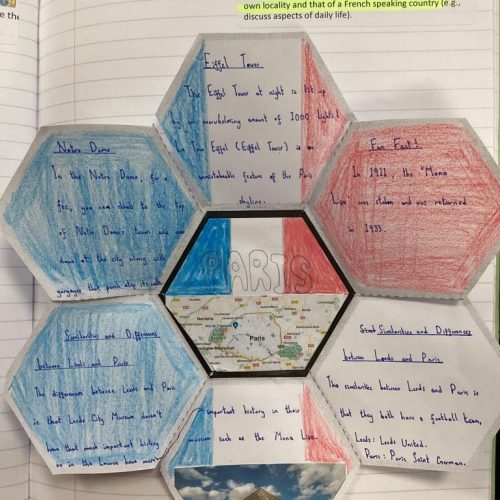 own locality and that of a French speaking country (e.g.,
discuss aspects of daily life).
e the
Eiffel Tower
The Eiffel Tower at night is lit up
by an overwhelming amount of 1000 lights!
La Tour Eiffel (Eiffel Tower) is an
unmistakable feature of the Paris
skyline.
Notre Dame
In the Notre Dame, for a
fee, you can climb to the top
of Notre Dame's towers and
down at the city along with
gargoyles that perch atop its
Fun Fact!
In 1911, the "Mona
Lisa" was stolen and was returned
in 1933.
PARIS
Nanterre
Paris
Boulogne-Billancourt
Similarities and Differences
between Leeds and Paris
The differences between Leeds and Paris
is that Leeds City Museum doesn't
have that much important history
as in the Louvre have more
important history in their
museum such as the Mona Lisa.
Similarities and Differences
between Leeds and Paris
The similarities between Leeds and Paris is
that they both have a football team,
Leeds: Leeds United.
Paris: Paris Saint German.